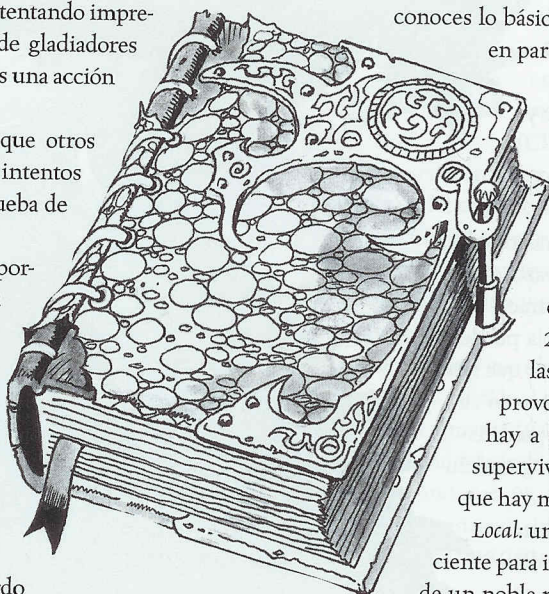 tentando impre-
de gladiadores
s una acción
que otros
intentos
ueba de
por-
rdo
conoces lo básic
en par
2
las
provo
hay a
superviv
que hay m
Local: un
ciente para i
de un noble